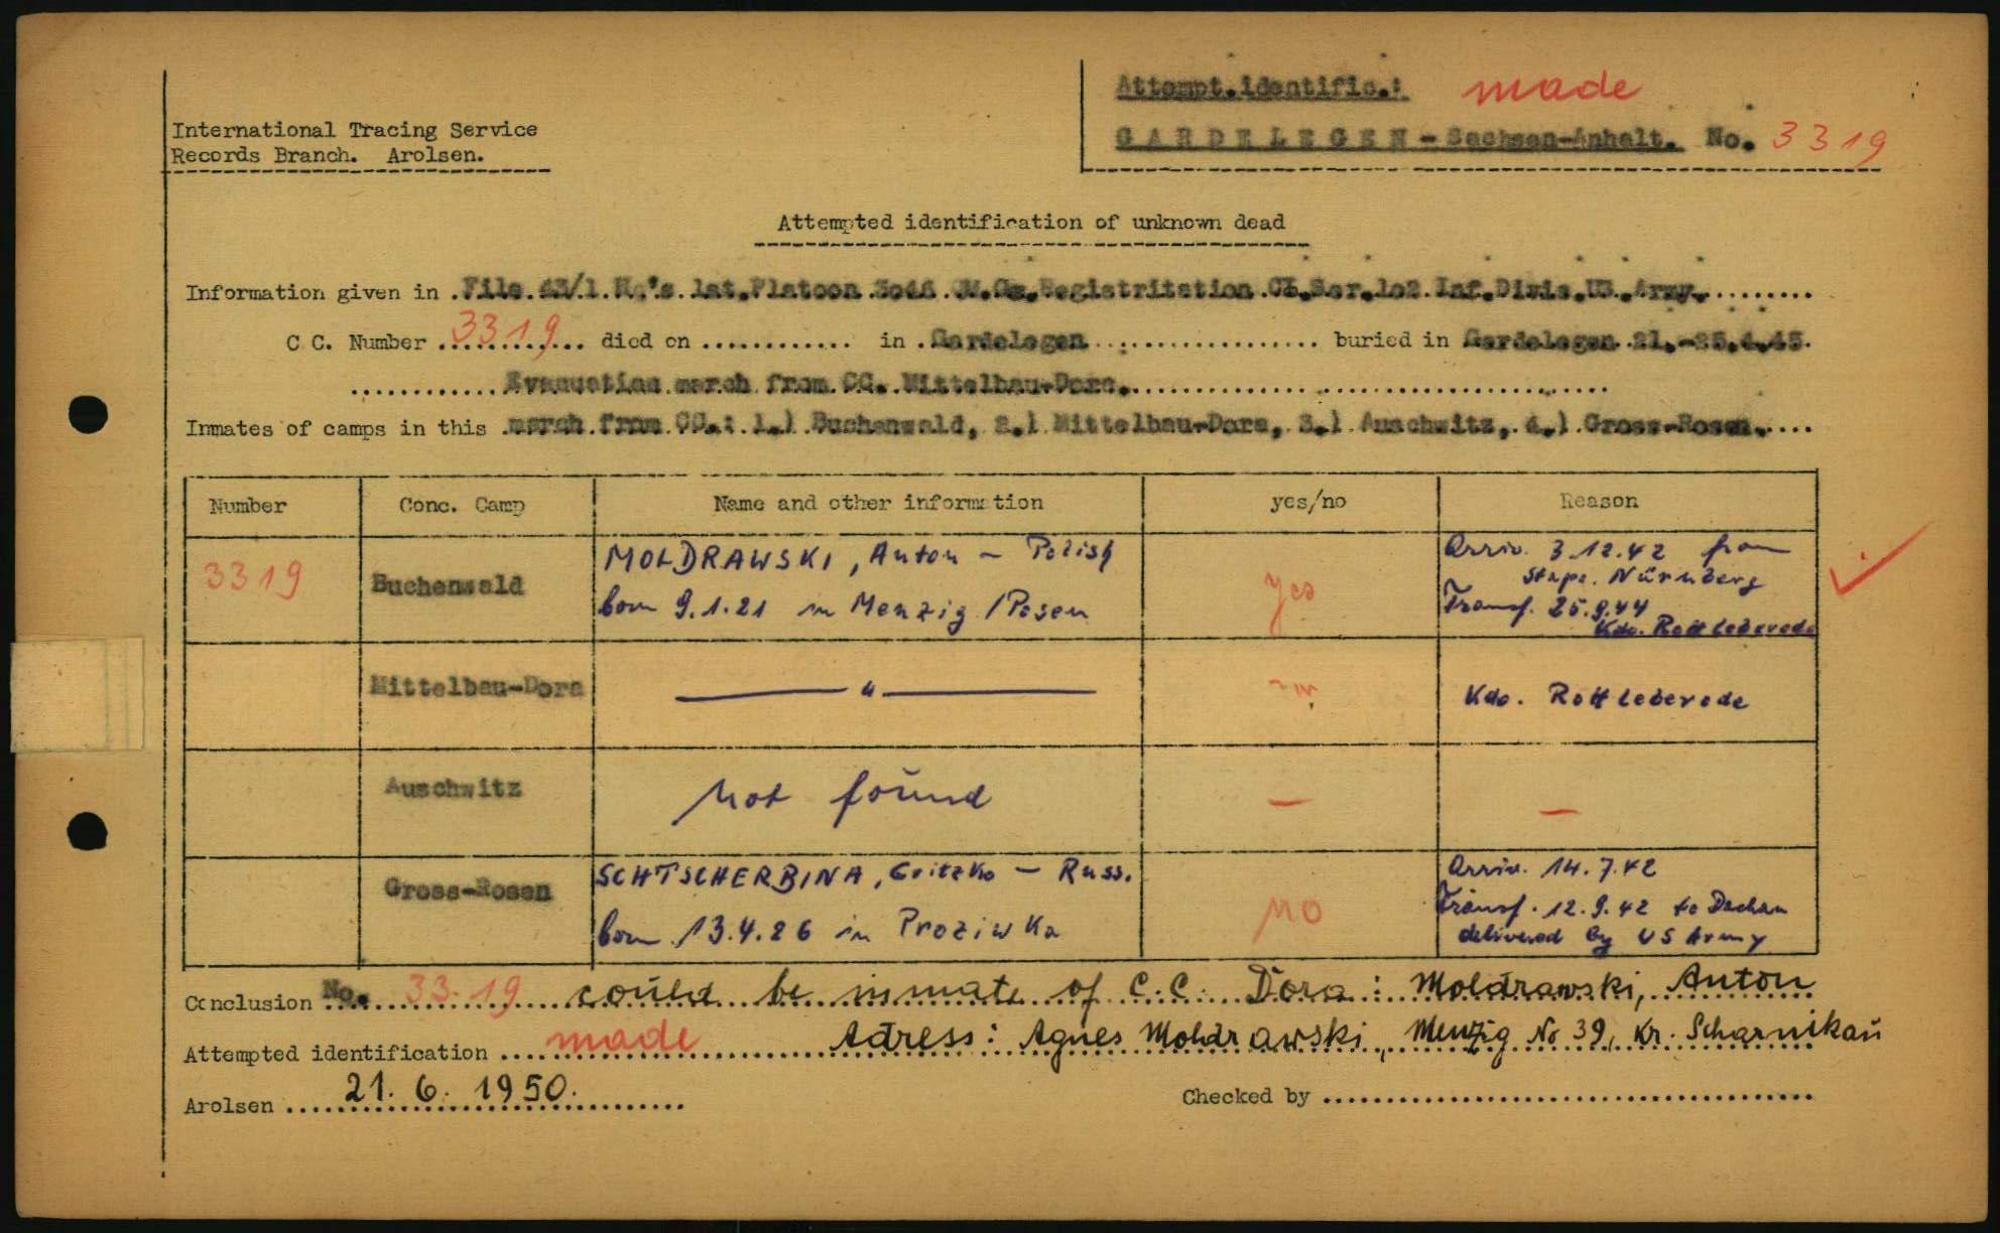 Attempt.identific.: made
International Tracing Service
Records Branch. Arolsen.
GARDELEGEN - Sachsen-Anhalt. No. 3319
Attempted identification of unknown dead
Information given in File 43/1 Hq's 1st.Platoon 3046 Registritation Ser.102 Inf.Divis.US.Army.
C C. Number 3319 died on ............ in Gardelegen ................ buried in Gardelegen 21.-25.4.45.
Evacuation march from CC. Mittelbau-Dora.
Inmates of camps in this march from CC.: 1.) Buchenwald, 2.) Mittelbau-Dora, 3.) Auschwitz, 4.) Gross-Rosen.
Number Conc. Camp Name and other information yes/no Reason
3319 Buchenwald MOLDRAWSKI, Anton – Polish yes Arriv. 3.12.42 from
Stapo. Nürnberg
born 9.1.21 in Menzig /Posen Transf. 25.9.44
Kdo. Rottleberode
Mittelbau-Dora — " — Kdo. Rottleberode
Auschwitz not found — —
Gross-Rosen SCHTSCHERBINA, Gritzko – Russ. no Arriv. 14.7.42
born 13.4.26 in Proziwka Transf. 12.9.42 to Dachau
delivered by US Army
Conclusion No. 3319 could be inmate of C.C. Dora: Moldrawski, Anton
Attempted identification made Adress: Agnes Moldrawski, Menzig No 39, Kr. Scharnikau
Arolsen 21. 6. 1950. Checked by